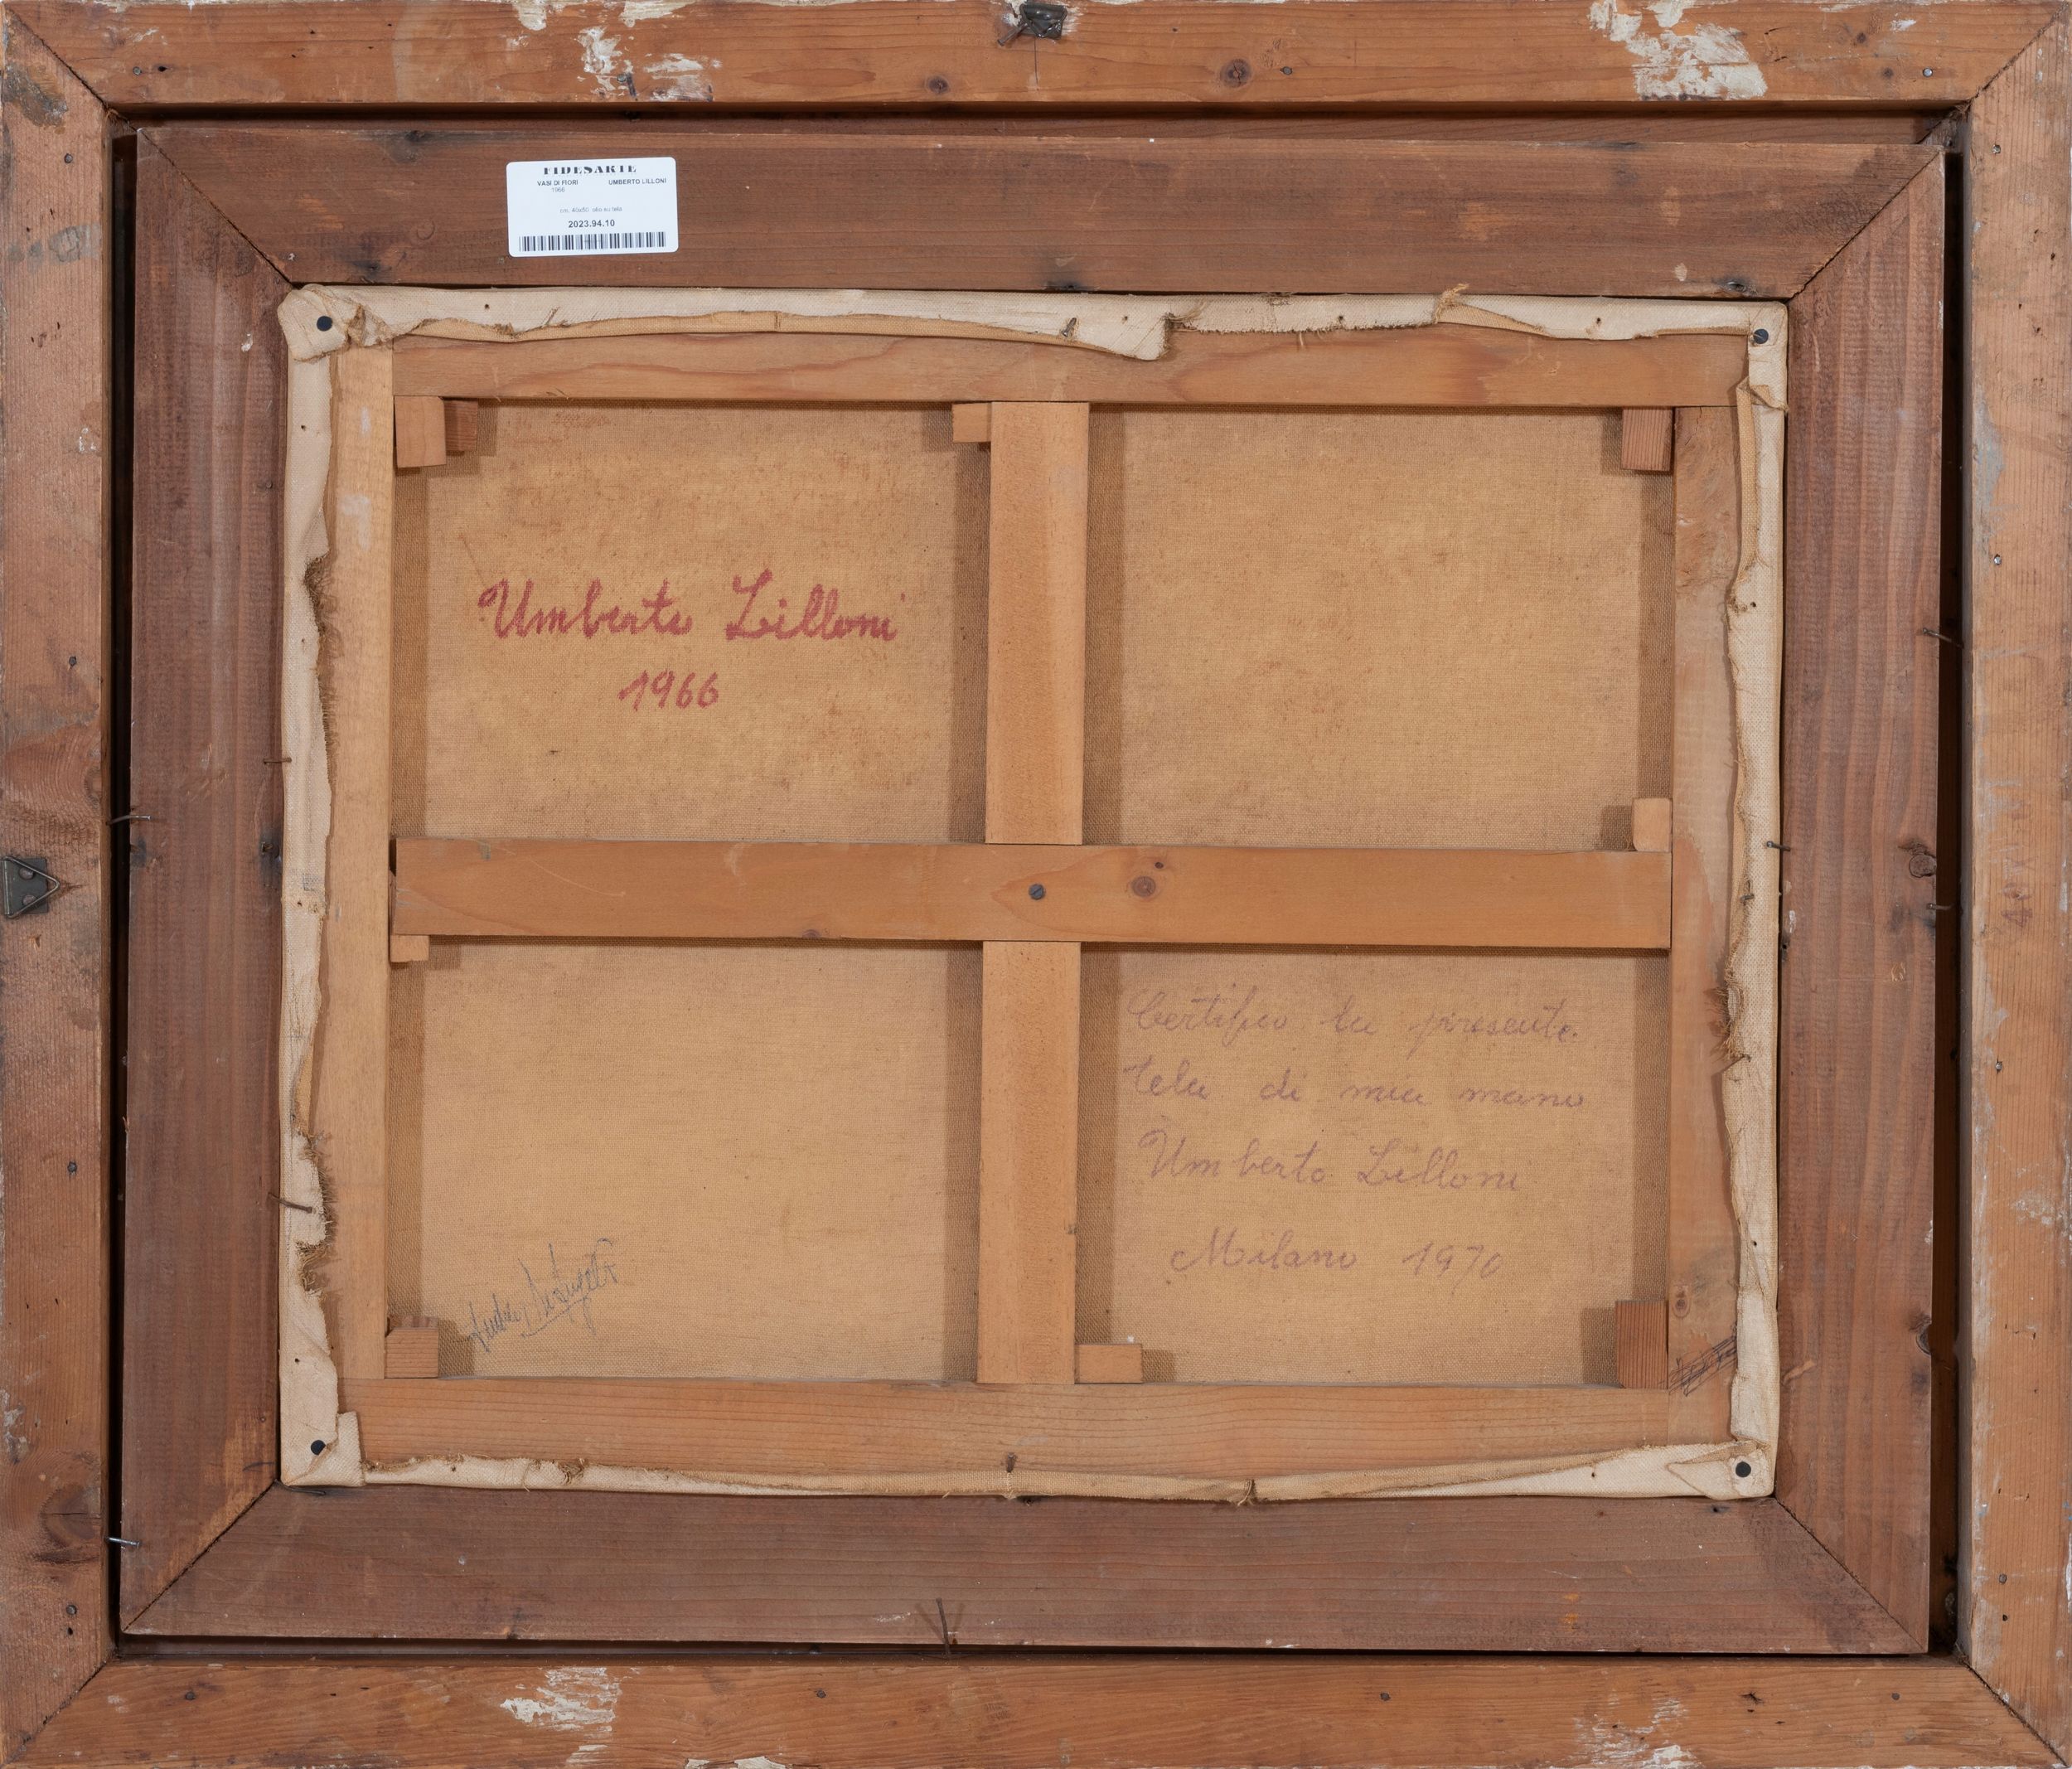 FIDESARTE
VASI DI FIORI UMBERTO LILLONI
1966
cm. 40x50 olio su tela
2023.94.10
Umberto Lilloni
1966
Certifico la presente
tela di mia mano
Umberto Lilloni
Milano 1970